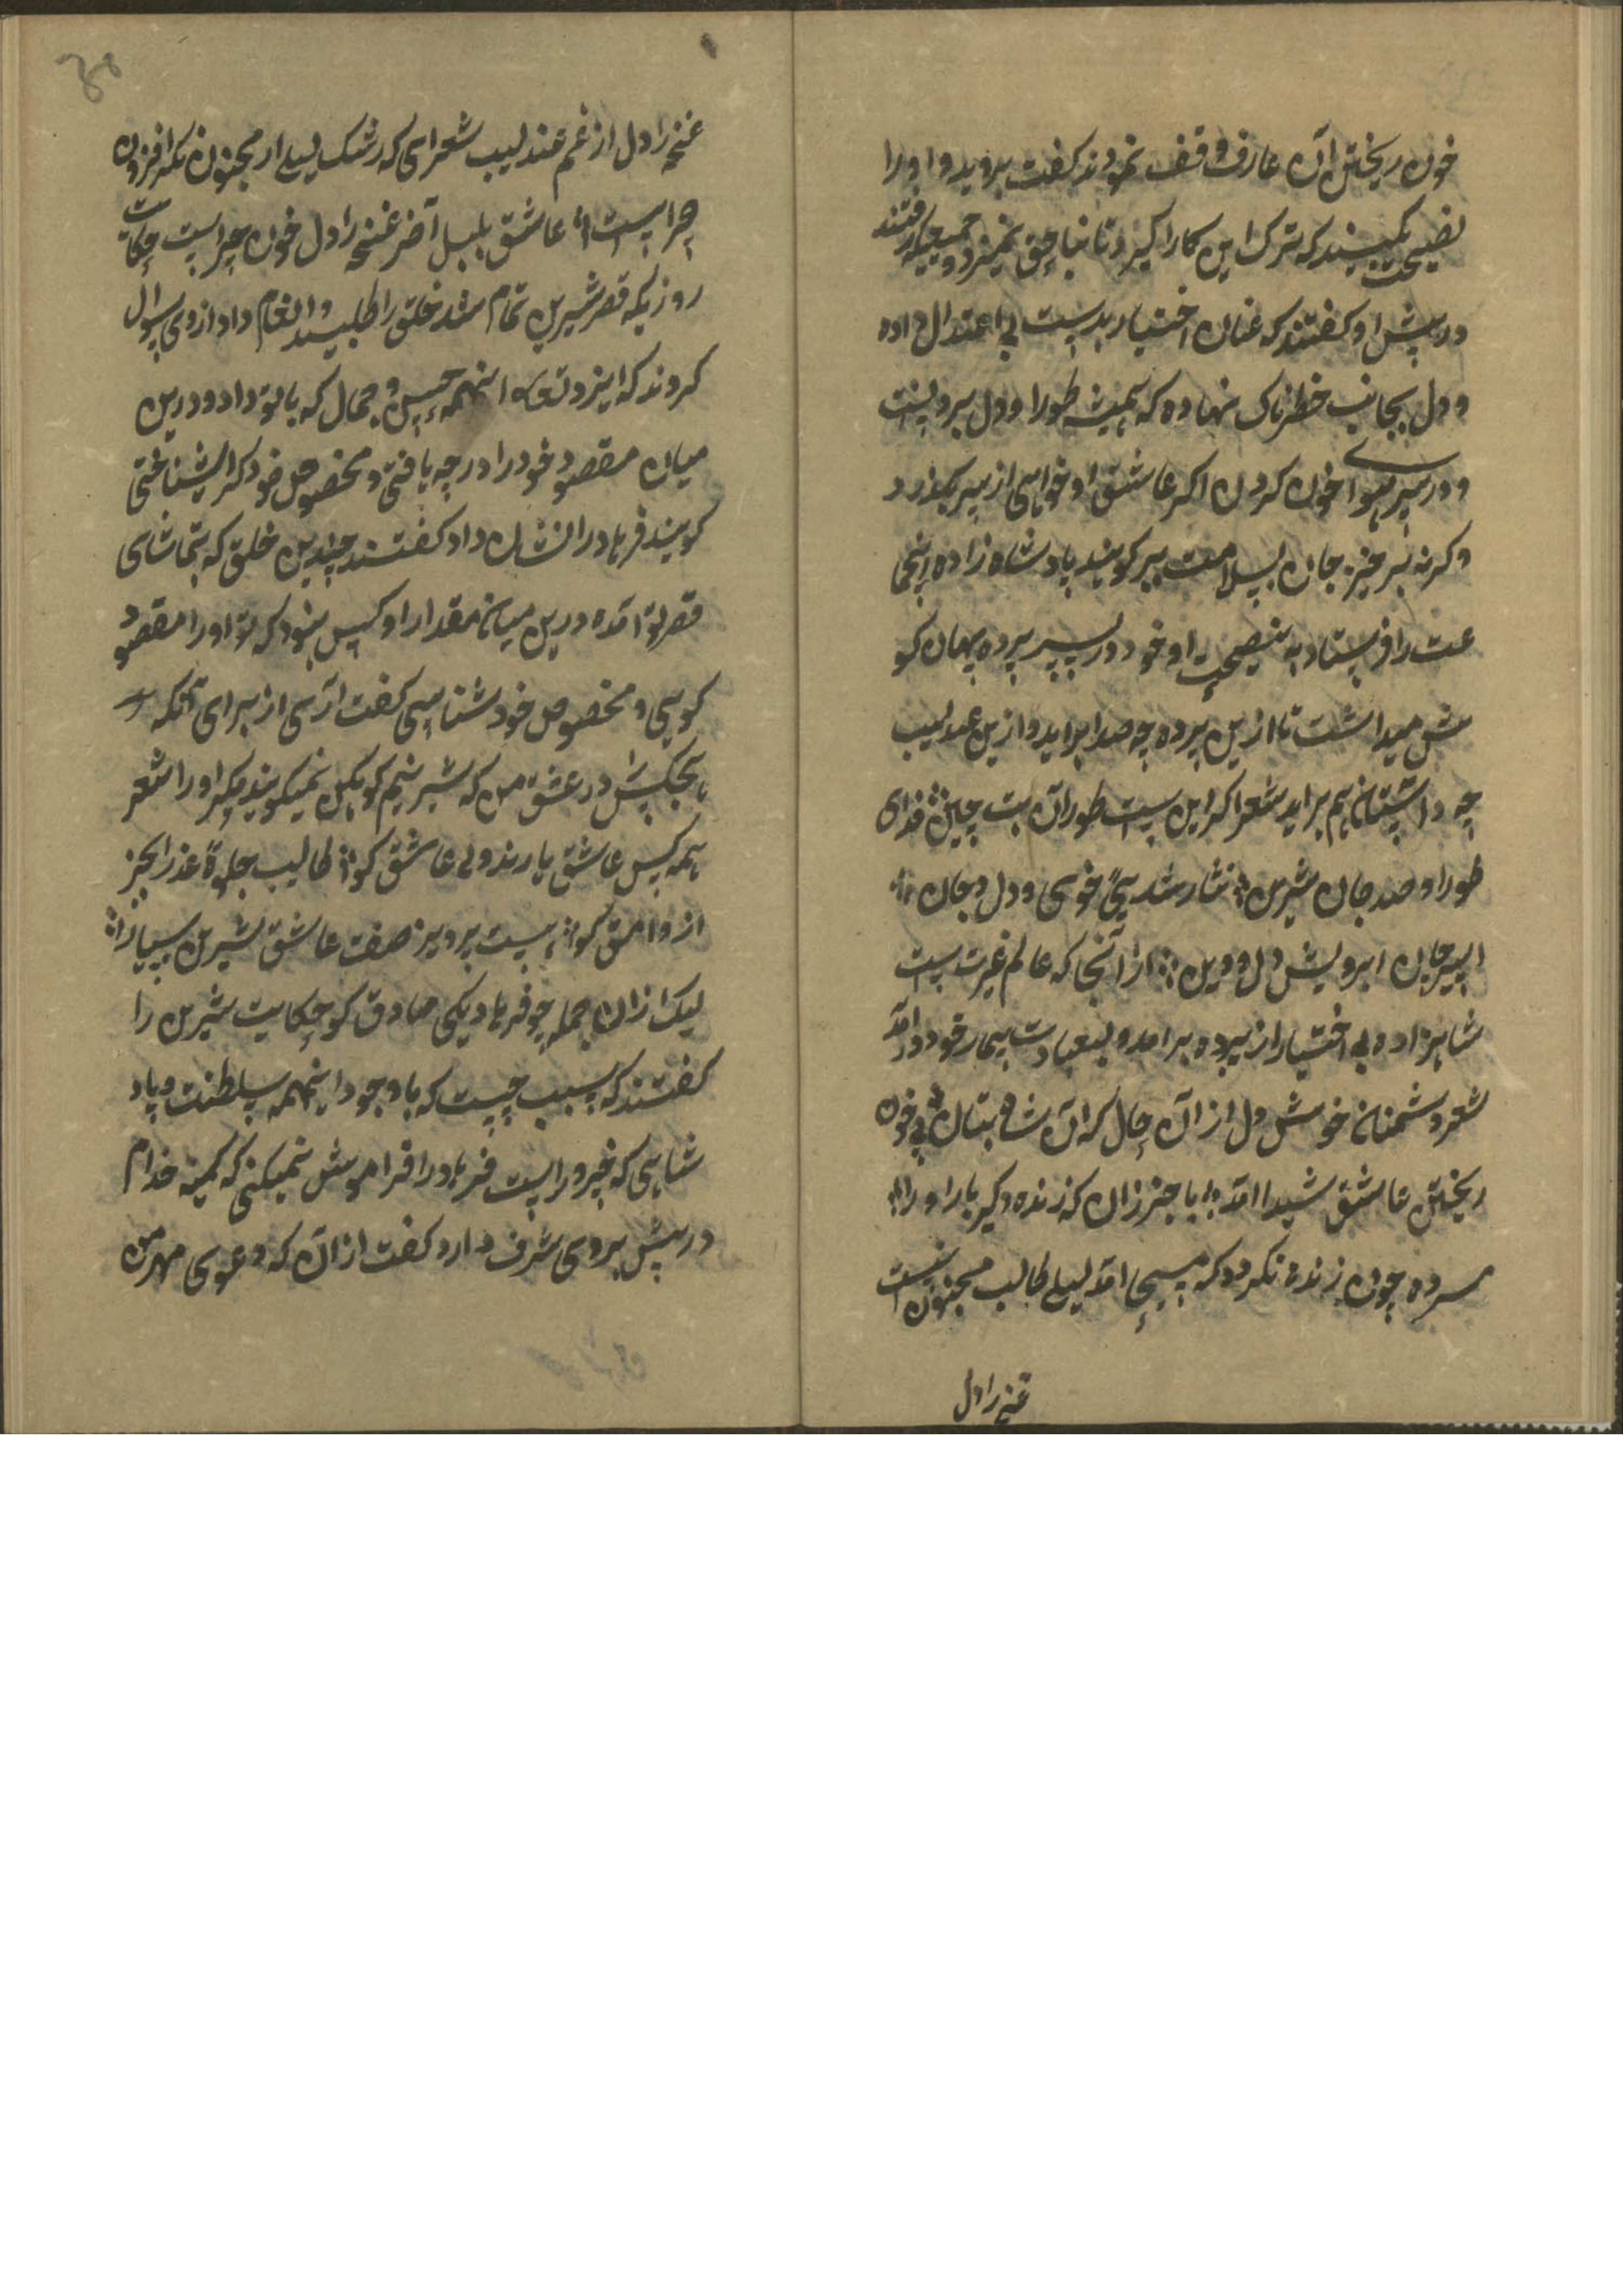 خون ریختن آن عارف وقف نمودند کفت بروید و او را
نصیحت بکنیند که ترک این کار کیرد تا بنا حق نمیرد جمعیکه رفتند
در پیش او کفتند که عنان اختیار بدست بی اعتدال داده
و دل بجانب خطرناک نهاده که همیشه طور او دل بردنست
و در سر هوا خون کردن اکر عاشق او خواهی از سر بکذرد
و کرنه برخیز جان بسلامت ببر کویند پادشاه زاده انجما
عت را فرستاد به نصیحت او خود در پس پرده پنهان کو
ش میداشت تا ازین پرده چه صدا براید و ازین عندلیب
چه داستان هم براید شعر اکر این ست طور آن بت چین فدای
طور او صد جان شیرین نثار شد پی خوی و دل و جان
اسیر جان ابرویش دل و دین از آنجا که عالم غیرت ست
شاهزاده بی اختیار از پرده برامد و بعیادت بیمار خود درآمد
شعر دشمنان خوش دل از آن حال که آن شاه بتان پی خون
ریختن عاشق شیدا آمد با خبر زان که زنده دکیر باراو را
مرده چون زنده نکردد که مسیحا آمد لیلی طالب مجنون نیست
غنچه را دل
غنچه را دل از غم عندلیب شعر ای که رشک لیلی از مجنون نکر افزون
چراست عاشق بلبل آخر غنچه را دل خون چراست حکایت
روزیکه قصر شیرین تمام شد خلق را طلبید و انعام داد از وی سوال
کردند که ایزد تعالی اینهمه حسن و جمال که باتو داد و درین
میان مقصود خود را در چه یافتی و مخصوص خود کرا شناختی
کویند فرهاد را نشان داد کفتند چندین خلق که بتماشای
قصر تو آمده درین میان مقدار او کس نبود که تو او را مقصود
کویی و مخصوص خود شناسی کفت آری از برای آنکه
هیچکس در عشق من که شیرینم کوهکن نمیکویند مکر او را شعر
همه کس عاشق یارند ولی عاشق کو طالب جلوهٔ عذرا بجز
از وامق کو هست پرویز صفت عاشق شیرین بسیار
لیک ازان جمله چو فرهاد یکی صادق کو حکایت شیرین را
کفتند که سبب چیست که باوجود اینهمه سلطنت و پاد
شاهی که خسرو راست فرهاد را فراموش نمیکنی که کمینه خدام
در پیش بروی شرف دارد کفت از آن که دعوی مهر من